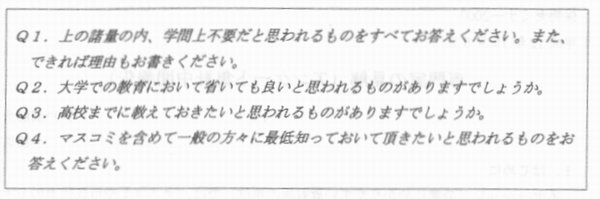 Q1．上の諸量の内、学問上不要だと思われるものをすべてお答えください。また、
できれば理由もお書きください。
Q2．大学での教育において省いても良いと思われるものがありますでしょうか。
Q3．高校までに教えておきたいと思われるものがありますでしょうか。
Q4．マスコミを含めて一般の方々に最低知っておいて頂きたいと思われるものをお
答えください。